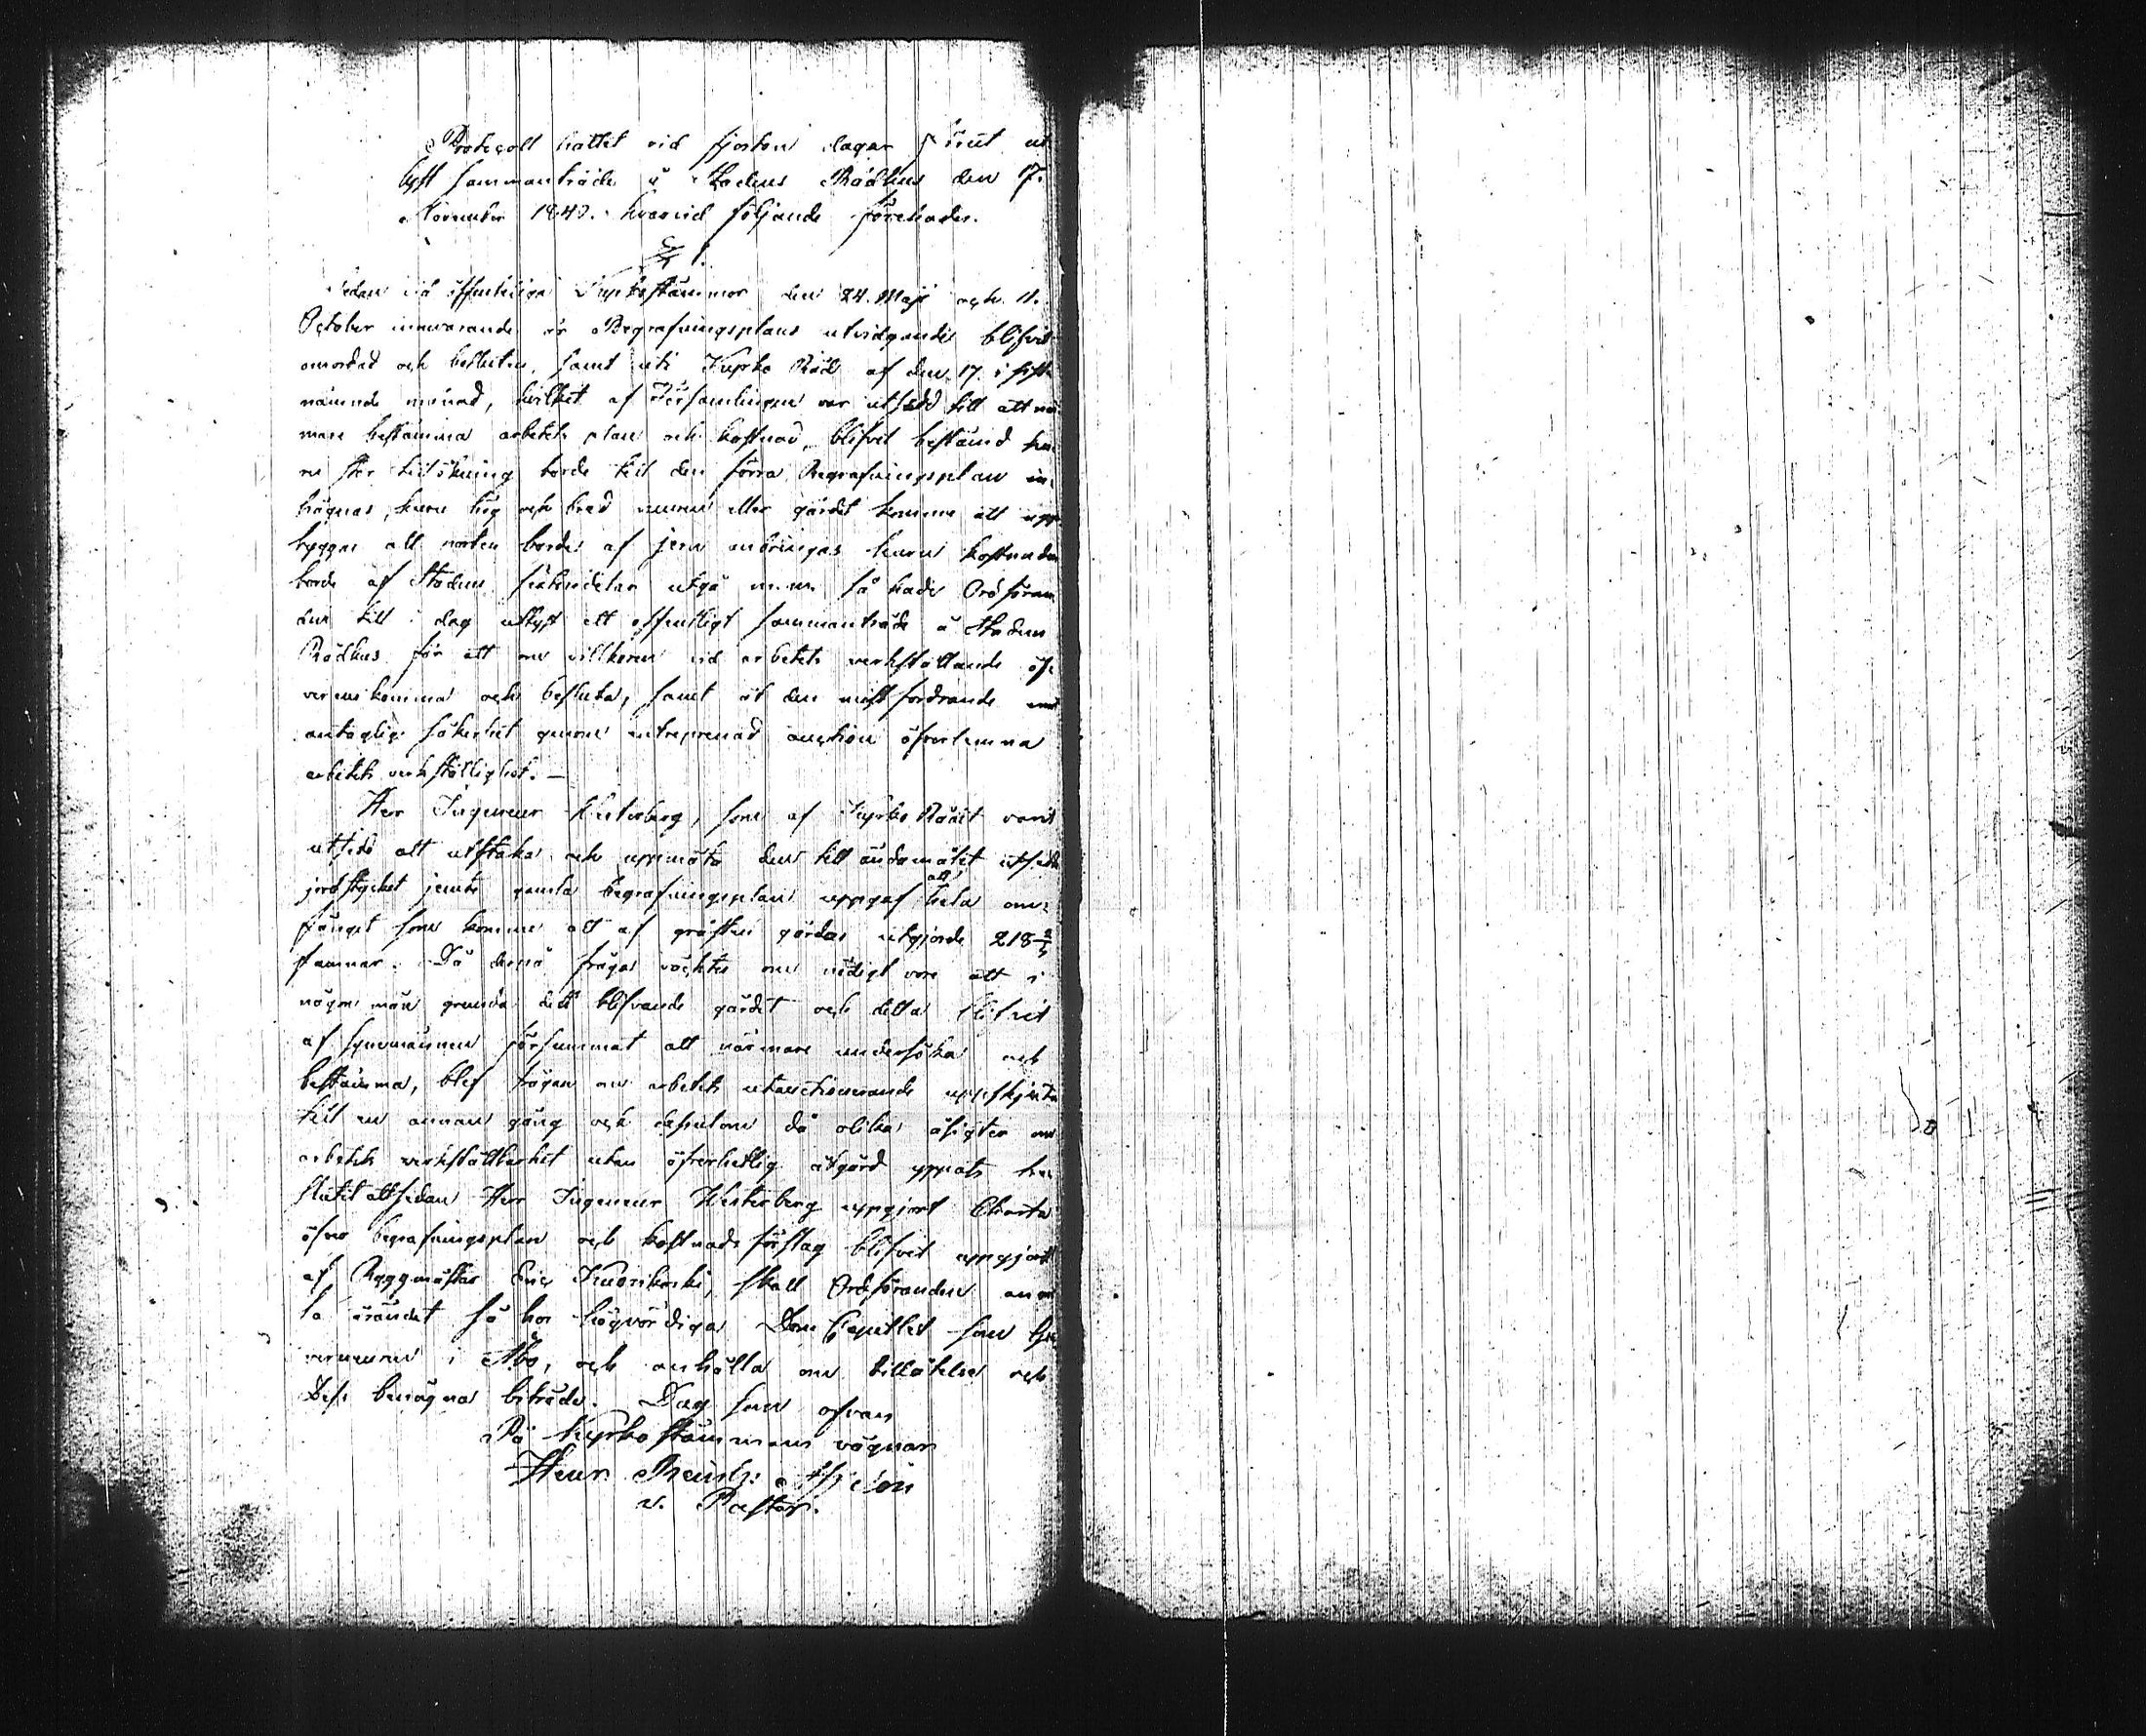 Protocoll hållet vid fjorton dagar förut ut
lyst sammanträde å Stadens Rådhus den 17.
November 1840. hvarvid följande förehades.
§ 1.
Sedan vid offentliga Kyrkostämmor den 24. Maji och 11.
October innevarande år Begrafningsplans utvidgande blifvit
omordad och besluten, samt uti Kyrko Råd af den 17. i sist
nämnde månad, hvilket af Församlingen var utsedd till att nä
mare bestämma arbetets plan och kostnad, blifvit bestämd hu
ru stor tillökning borde till den förra Begrafningsplan in
hägnas, huru hög och bred muren eller gärdet komme att upp
byggas att porten borde af jern anbringas huru kostnaden
borde af Stadens utgå m.m. så hade Ordföran
den till i dag utlyst ett offentligt sammanträde å Stadens
Rådhus för att om villkoren vid arbetets verkställande öf
verenskomma och besluta, samt åt den minst fordrande mot
antaglig säkerhet genom entreprenad auction öfverlemna
arbetets verkställighet. —
Herr Ingenieur Westerberg, som af Kyrko Rådet varit
utsedd att utstaka och uppmäta den till ändamålet utsedda
jordstycket jemte gamla begrafningsplan uppgaf att hela om-
fånget som komme att af gråsten gärdas utgjorde 218
famnar. Då denna fråga väcktes om nödigt vore att i
någon mån grunda det blifvande gärdet och detta blifvit
af synemännen försummat att närmare undersöka och
bestämma, blef frågan om arbetets utauctionerande uppskjuten
till en annan gång och dessutom då olika åsigter om
arbetets verkställbarhet utan öfverhetlig åtgärd yppats be
slutit att sedan Herr Ingenieur Westerberg uppgjort Charta
öfver begrafningsplan och kostnads förslag blifvit uppgjordt
af Byggmästar Eric Kuorikoski, skall Ordföranden anmä
la ärendet så hos högvördiga Dom Capitlet som Gu
verneuren i Åbo, och anhålla om tillåtelse och
Dess benägna biträde. Dag som ofvan
På Kyrkostämmans vägnar
Henr. Reinh.
v. Pastor.